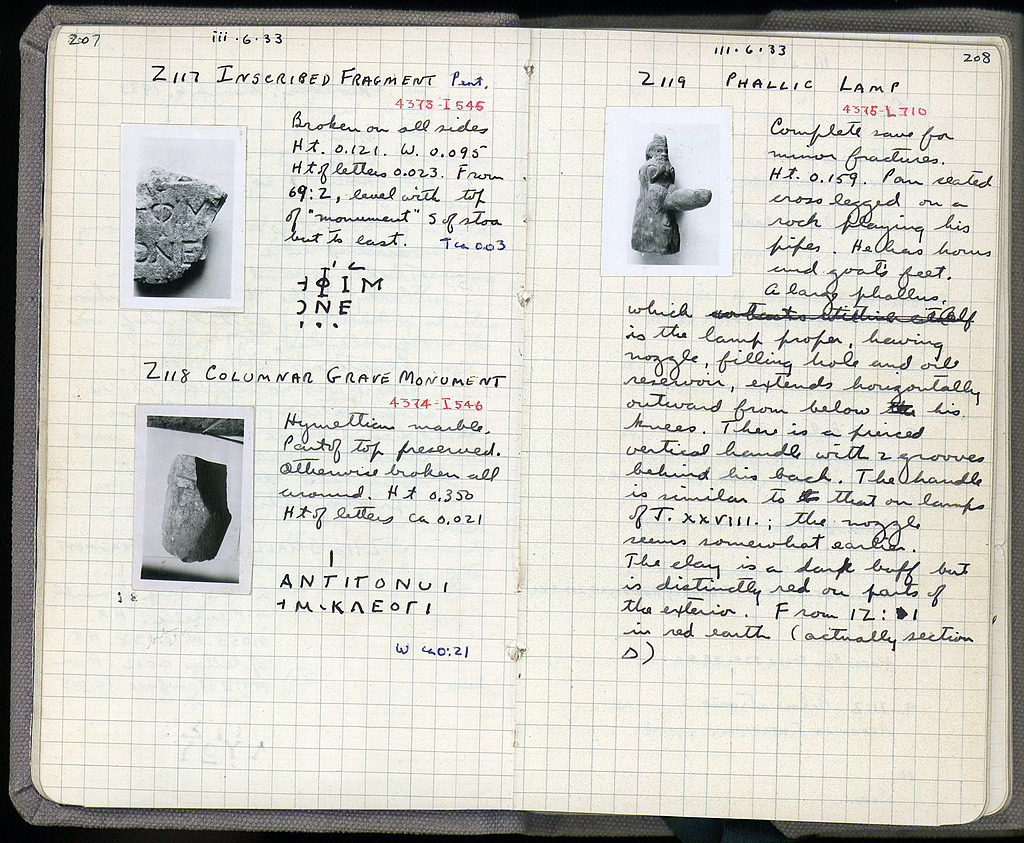 207
iii · 6 · 33
Z 117 INSCRIBED FRAGMENT Pent.
4373-I 545
Broken on all sides
Ht. 0.121. W. 0.095
Ht of letters 0.023. From
69:2, level with top
of "monument" S of stoa
but to east. T ca 0.03
ΝΕ
Z 118 COLUMNAR GRAVE MONUMENT
4374-I 546
Hymettian marble.
Part of top preserved.
Otherwise broken all
around. Ht 0.350
Ht of letters ca 0.021
W ca 0.21
III · 6 · 33
208
Z 119 PHALLIC LAMP
4375-L 710
Complete save for
minor fractures.
Ht. 0.159. Pan seated
cross legged on a
rock playing his
pipes. He has horns
and goat's feet.
A large phallus,
which
is the lamp proper, having
nozzle, filling hole and oil
reservoir, extends horizontally
outward from below his
knees. There is a pierced
vertical handle with 2 grooves
behind his back. The handle
is similar to that on lamps
of T. XXVIII.; the nozzle
seems somewhat earlier.
The clay is a dark buff but
is distinctly red on parts of
the exterior. From 12: 1
in red earth (actually section
Δ)